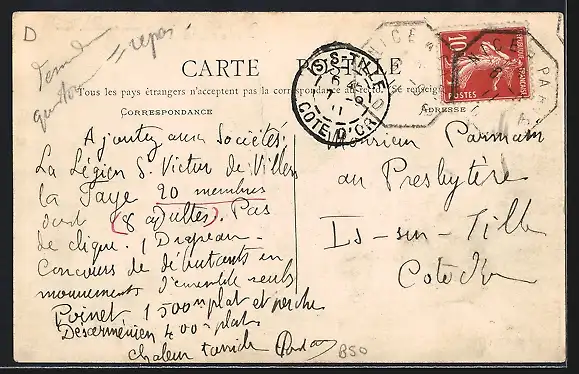 D
repas
CARTE POSTALE
Tous les pays étrangers n'acceptent pas la correspondance au recto. Se renseign
CORRESPONDANCE
ADRESSE
IS-S-TILLE
COTE D'OR
NICE A PAR
10
POSTES
REPUBLIQUE FRANÇAISE
Ajoutez aux Sociétés:
La Légion S. Victor de Villers
la Faye 20 membres
dont (8 adultes). Pas
de clique. 1 Drapeau.
Concours de débutants en
mouvements d'ensemble seuls
Poinet 1500m plat et perche
Desarmenien 400m plat
chaleur torride
B50
Monsieur Parmain
au Presbytère
Is-sur-Tille
Côte d'Or